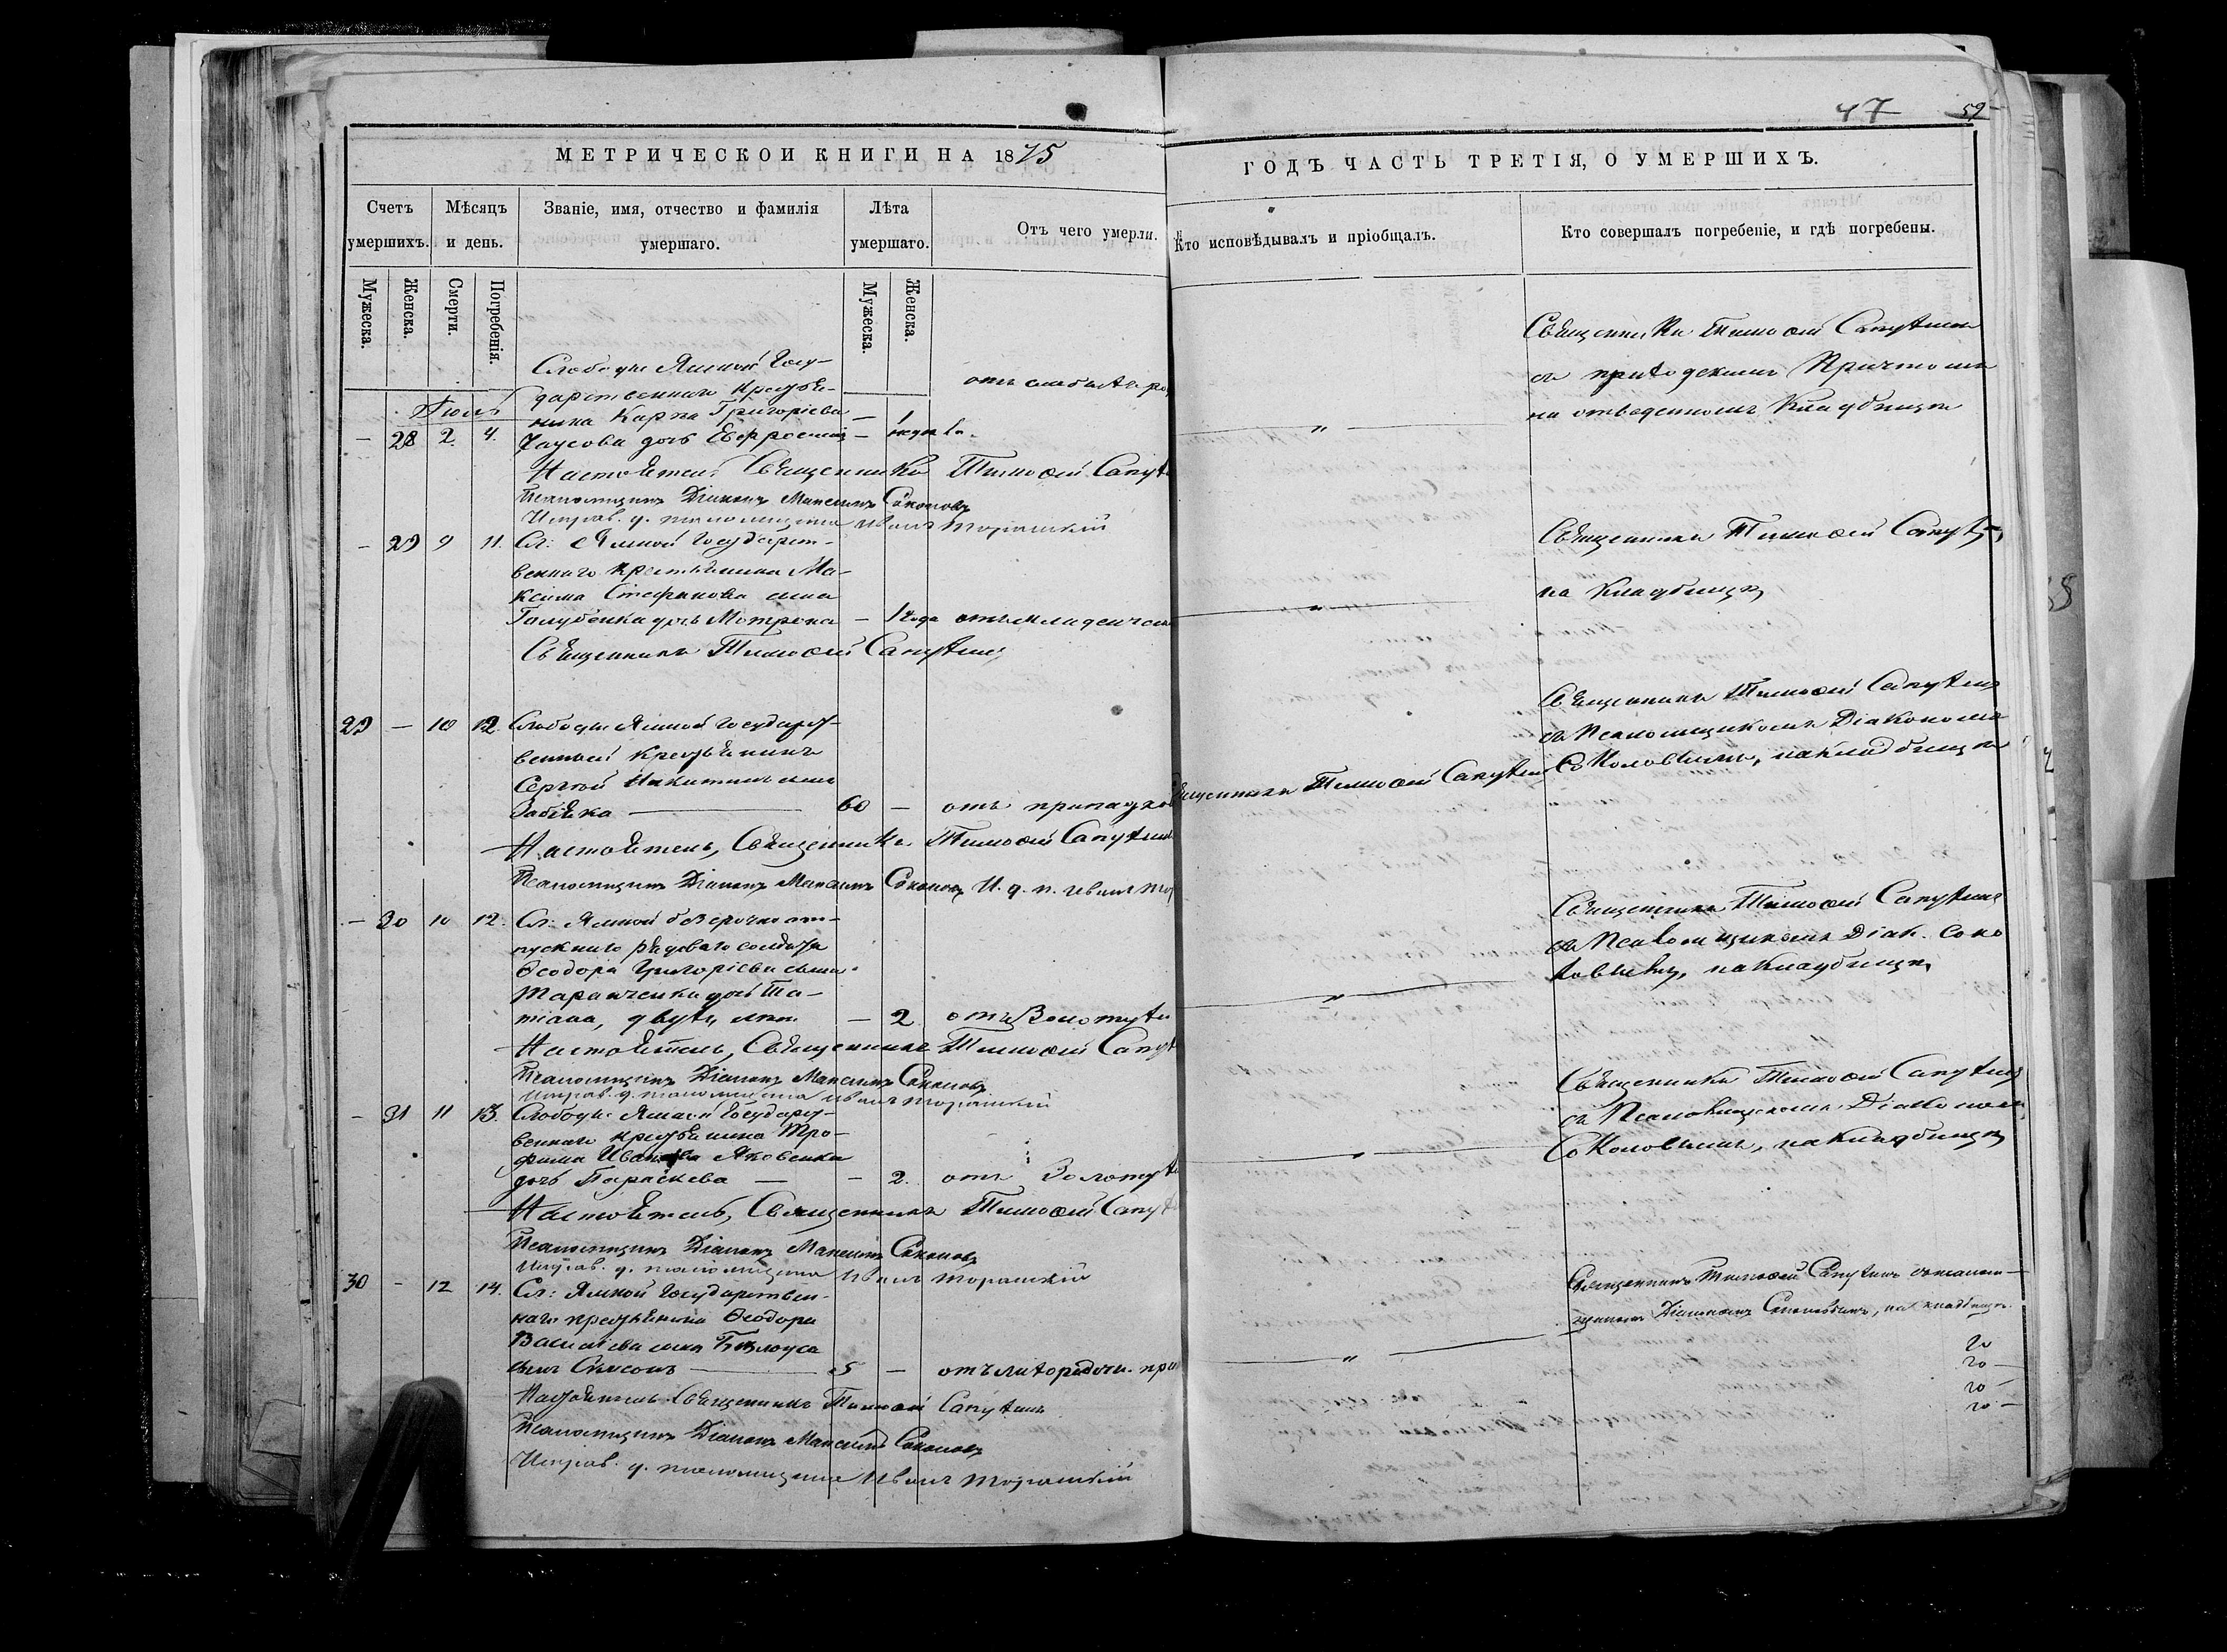 47 59
МЕТРИЧЕСКОЙ КНИГИ НА 1875
ГОДЪ ЧАСТЬ ТРЕТІЯ, О УМЕРШИХЪ.
Счетъ умершихъ.
Мѣсяцъ и день.
Званіе, имя, отчество и фамилія умершаго.
Лѣта умершаго.
Отъ чего умерли.
Кто исповѣдывалъ и пріобщалъ.
Кто совершалъ погребеніе, и гдѣ погребены.
Мужеска.
Женска.
Смерти.
Погребенія.
Мужеска.
Женска.
Слободы Ямной Госу-
дарственнаго Крестья-
нина Карпа Григоріева
— 28 2. 4. дочь Евфросинія —
Священникъ Тимоѳей Сапухинъ
съ приходскимъ Причтомъ
на отведенномъ Кладбищѣ
Настоятель Священникъ Тимоѳей Сапух
Псаломщикъ Діаконъ Максимъ Соколовъ
Исправ. д. псаломщика Иванъ
— 29 9 11. Сл: Ямной Государст-
веннаго Крестьянина Ма-
ксима Стефанова сына
Голубенка дочь Мотрона — 1 года отъ младенчес
Священникъ Тимоѳей Сапухинъ
Священникъ Тимоѳей Сапух
на Кладбищѣ
29 — 10 12. Слободы Ямной Государст-
венный Крестьянинъ
Сергѣй Никитинъ сынъ
60 — отъ припадков
Священникъ Тимоѳей Сапухинъ
Священникъ Тимоѳей Сапухинъ
съ Псаломщикомъ Діакономъ
Соколовымъ, на кладбищѣ
Настоятель, Священникъ Тимоѳей Сапухин
Псаломщикъ Діаконъ Максимъ Соколовъ И. д. п. Иванъ
— 30 10 12. Сл: Ямной безсрочно от-
пускнаго рядоваго солдата
Ѳеодора Григоріева сына
Таранченка дочь Та-
тіана, двухъ лѣтъ — 2 отъ Золотухи
Священникъ Тимоѳей Сапухинъ
съ Псаломщикомъ Діак. Соко
ловымъ, на Кладбищѣ
Настоятель, Священникъ Тимоѳей Сапух
Псаломщикъ Діаконъ Максимъ Соколовъ
Исправ. д. псаломщика Иванъ
— 31 11 13. Слободы Ямной Государст-
веннаго крестьянина Тро-
фима Иванова Яковенка
дочь Параскева — — 2. отъ Золотух
Священникъ Тимоѳей Сапухинъ
съ Псаломщикомъ Діаконом
Соколовымъ, на Кладбищѣ
Настоятель, Священникъ Тимоѳей Сапух
Псаломщикъ Діаконъ Максимъ Соколовъ
Исправ. д. псаломщика Иванъ
30 — 12 14. Сл: Ямной Государствен-
наго крестьянина Ѳеодора
Василіева сына Бѣлоуса
сынъ 5 — отъ
Священникъ Тимоѳей Сапухинъ съ псалом-
щикомъ Діакономъ Соколовымъ, на кладбищѣ.
Настоятель Священникъ Тимоѳей Сапухинъ
Псаломщикъ Діаконъ Максимъ Соколовъ
Исправ. д. псаломщика Иванъ